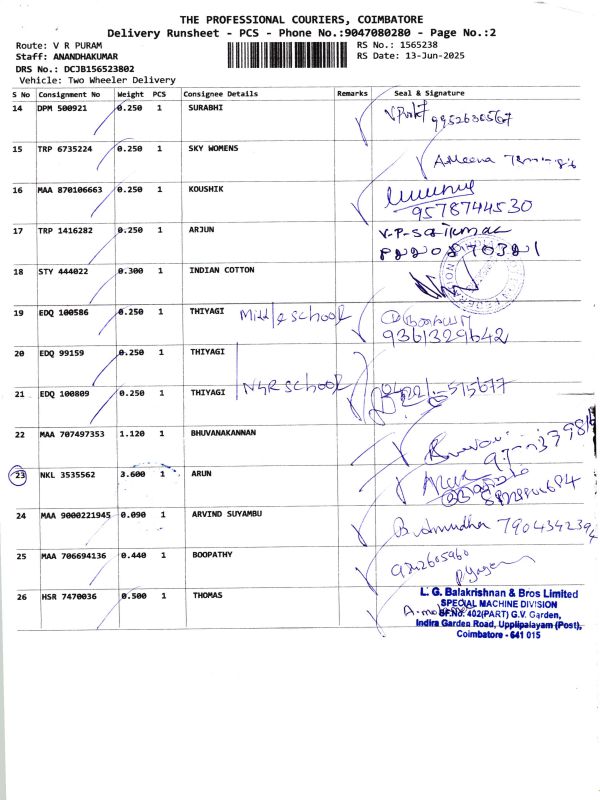 THE PROFESSIONAL COURIERS, COIMBATORE
Delivery Runsheet - PCS - Phone No.:9047080280 - Page No.:2
Route: V R PURAM
RS No.: 1565238
Staff: ANANDHAKUMAR
RS Date: 13-Jun-2025
DRS No.: DCJB156523802
Vehicle: Two Wheeler Delivery
S No Consignment No Weight PCS Consignee Details Remarks Seal & Signature
14 DPM 500921 0.250 1 SURABHI
15 TRP 6735224 0.250 1 SKY WOMENS
16 MAA 870106663 0.250 1 KOUSHIK
9578744530
17 TRP 1416282 0.250 1 ARJUN
18 STY 444022 0.300 1 INDIAN COTTON
19 EDQ 100586 0.250 1 THIYAGI Middle school
9361329642
20 EDQ 99159 0.250 1 THIYAGI
21 EDQ 100809 0.250 1 THIYAGI school
22 MAA 707497353 1.120 1 BHUVANAKANNAN
23 NKL 3535562 3.600 1 ARUN
24 MAA 9000221945 0.090 1 ARVIND SUYAMBU
25 MAA 706694136 0.440 1 BOOPATHY
26 HSR 7470036 0.500 1 THOMAS
L. G. Balakrishnan & Bros Limited
SPECIAL MACHINE DIVISION
SF.No. 402(PART) G.V. Garden,
Indira Garden Road, Upplipalayam (Post),
Coimbatore - 641 015